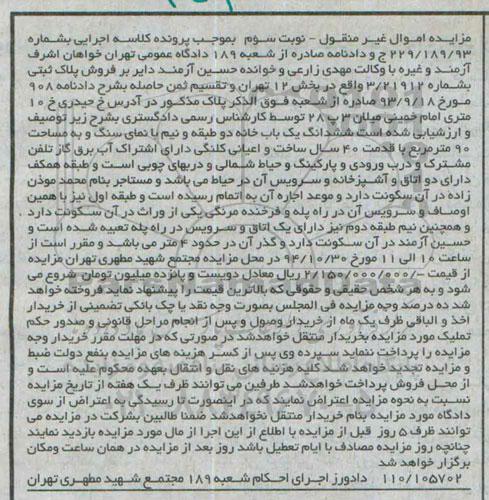 مزایده اموال غیر منقول - نوبت سوم بموجب پرونده کلاسه اجرایی بشماره
۲۲۹/۱۸۹/۹۳ ج و دادنامه صادره از شعبه ۱۸۹ دادگاه عمومی تهران خواهان اشرف
آزمند و غیره با وکالت مهدی زارعی و خوانده حسین آزمند دایر بر فروش پلاک ثبتی
بشماره ۳/۱۱۹۱۲ واقع در بخش ۱۲ تهران و تقسیم ثمن حاصله بشرح دادنامه ۹۰۸
مورخ ۹۳/۹/۱۸ صادره از شعبه فوق الذکر پلاک مذکور در آدرس خ حیدری خ ۱۰
متری امام خمینی میلان ۳ پ ۲۸ توسط کارشناس رسمی دادگستری بشرح زیر توصیف
و ارزشیابی شده است ششدانگ یک باب خانه دو طبقه و نیم با نمای سنگ و به مساحت
۹۰ مترمربع با قدمت ۴۰ سال ساخت و اعیانی کلنگی دارای اشتراک آب برق گاز تلفن
مشترک و درب ورودی و پارکینگ و حیاط شمالی و دربهای چوبی است و طبقه همکف
دارای دو اتاق و آشپزخانه و سرویس آن در حیاط می باشد و مستاجر بنام محمد موذن
زاده در آن سکونت دارد و موعد اجاره آن به اتمام رسیده است و طبقه اول نیز با همین
اوصاف و سرویس آن در راه پله و فرخنده مرنگی یکی از وراث در آن سکونت دارد .
و همچنین نیم طبقه دوم نیز دارای یک اتاق و سرویس در راه پله تعبیه شده است و
حسین آزمند در آن سکونت دارد و گذر آن در حدود ۴ متر می باشد و مقرر است از
ساعت ۱۰ الی ۱۱ مورخ ۹۴/۱۰/۳۰ در محل مزایده مجتمع شهید مطهری تهران مزایده
از قیمت -/۲/۱۵۰/۰۰۰/۰۰۰ ریال معادل دویست و پانزده میلیون تومان شروع می
شود و به هر شخص حقیقی و حقوقی که بالاترین قیمت را پیشنهاد نماید فروخته خواهد
شد ده درصد وجه مزایده فی المجلس بصورت وجه نقد یا چک بانکی تضمینی از خریدار
اخذ و الباقی ظرف یک ماه از خریدار وصول و پس از انجام مراحل قانونی و صدور حکم
تملیک مورد مزایده بخریدار منتقل خواهدشد در صورتی که در مهلت مقرر خریدار وجه
مزایده را پرداخت ننماید سپرده وی پس از کسر هزینه های مزایده بنفع دولت ضبط
و مزایده تجدید خواهد شد کلیه هزینه های نقل و انتقال بعهده محکوم علیه است و
از محل فروش پرداخت خواهدشد طرفین می توانند ظرف یک هفته از تاریخ مزایده
نسبت به نحوه مزایده اعتراض نمایند که در اینصورت تا رسیدگی به اعتراض از سوی
دادگاه مورد مزایده بنام خریدار منتقل نخواهدشد ضمنا طالبین بشرکت در مزایده می
توانند ظرف ۵ روز قبل از مزایده با اطلاع از این اجرا از مال مورد مزایده بازدید نمایند
چنانچه روز مزایده مصادف با ایام تعطیل باشد روز بعد از مزایده در همان ساعت ومکان
برگزار خواهد شد
۱۱۰/۱۰۵۷۰۲ دادورز اجرای احکام شعبه ۱۸۹ مجتمع شهید مطهری تهران